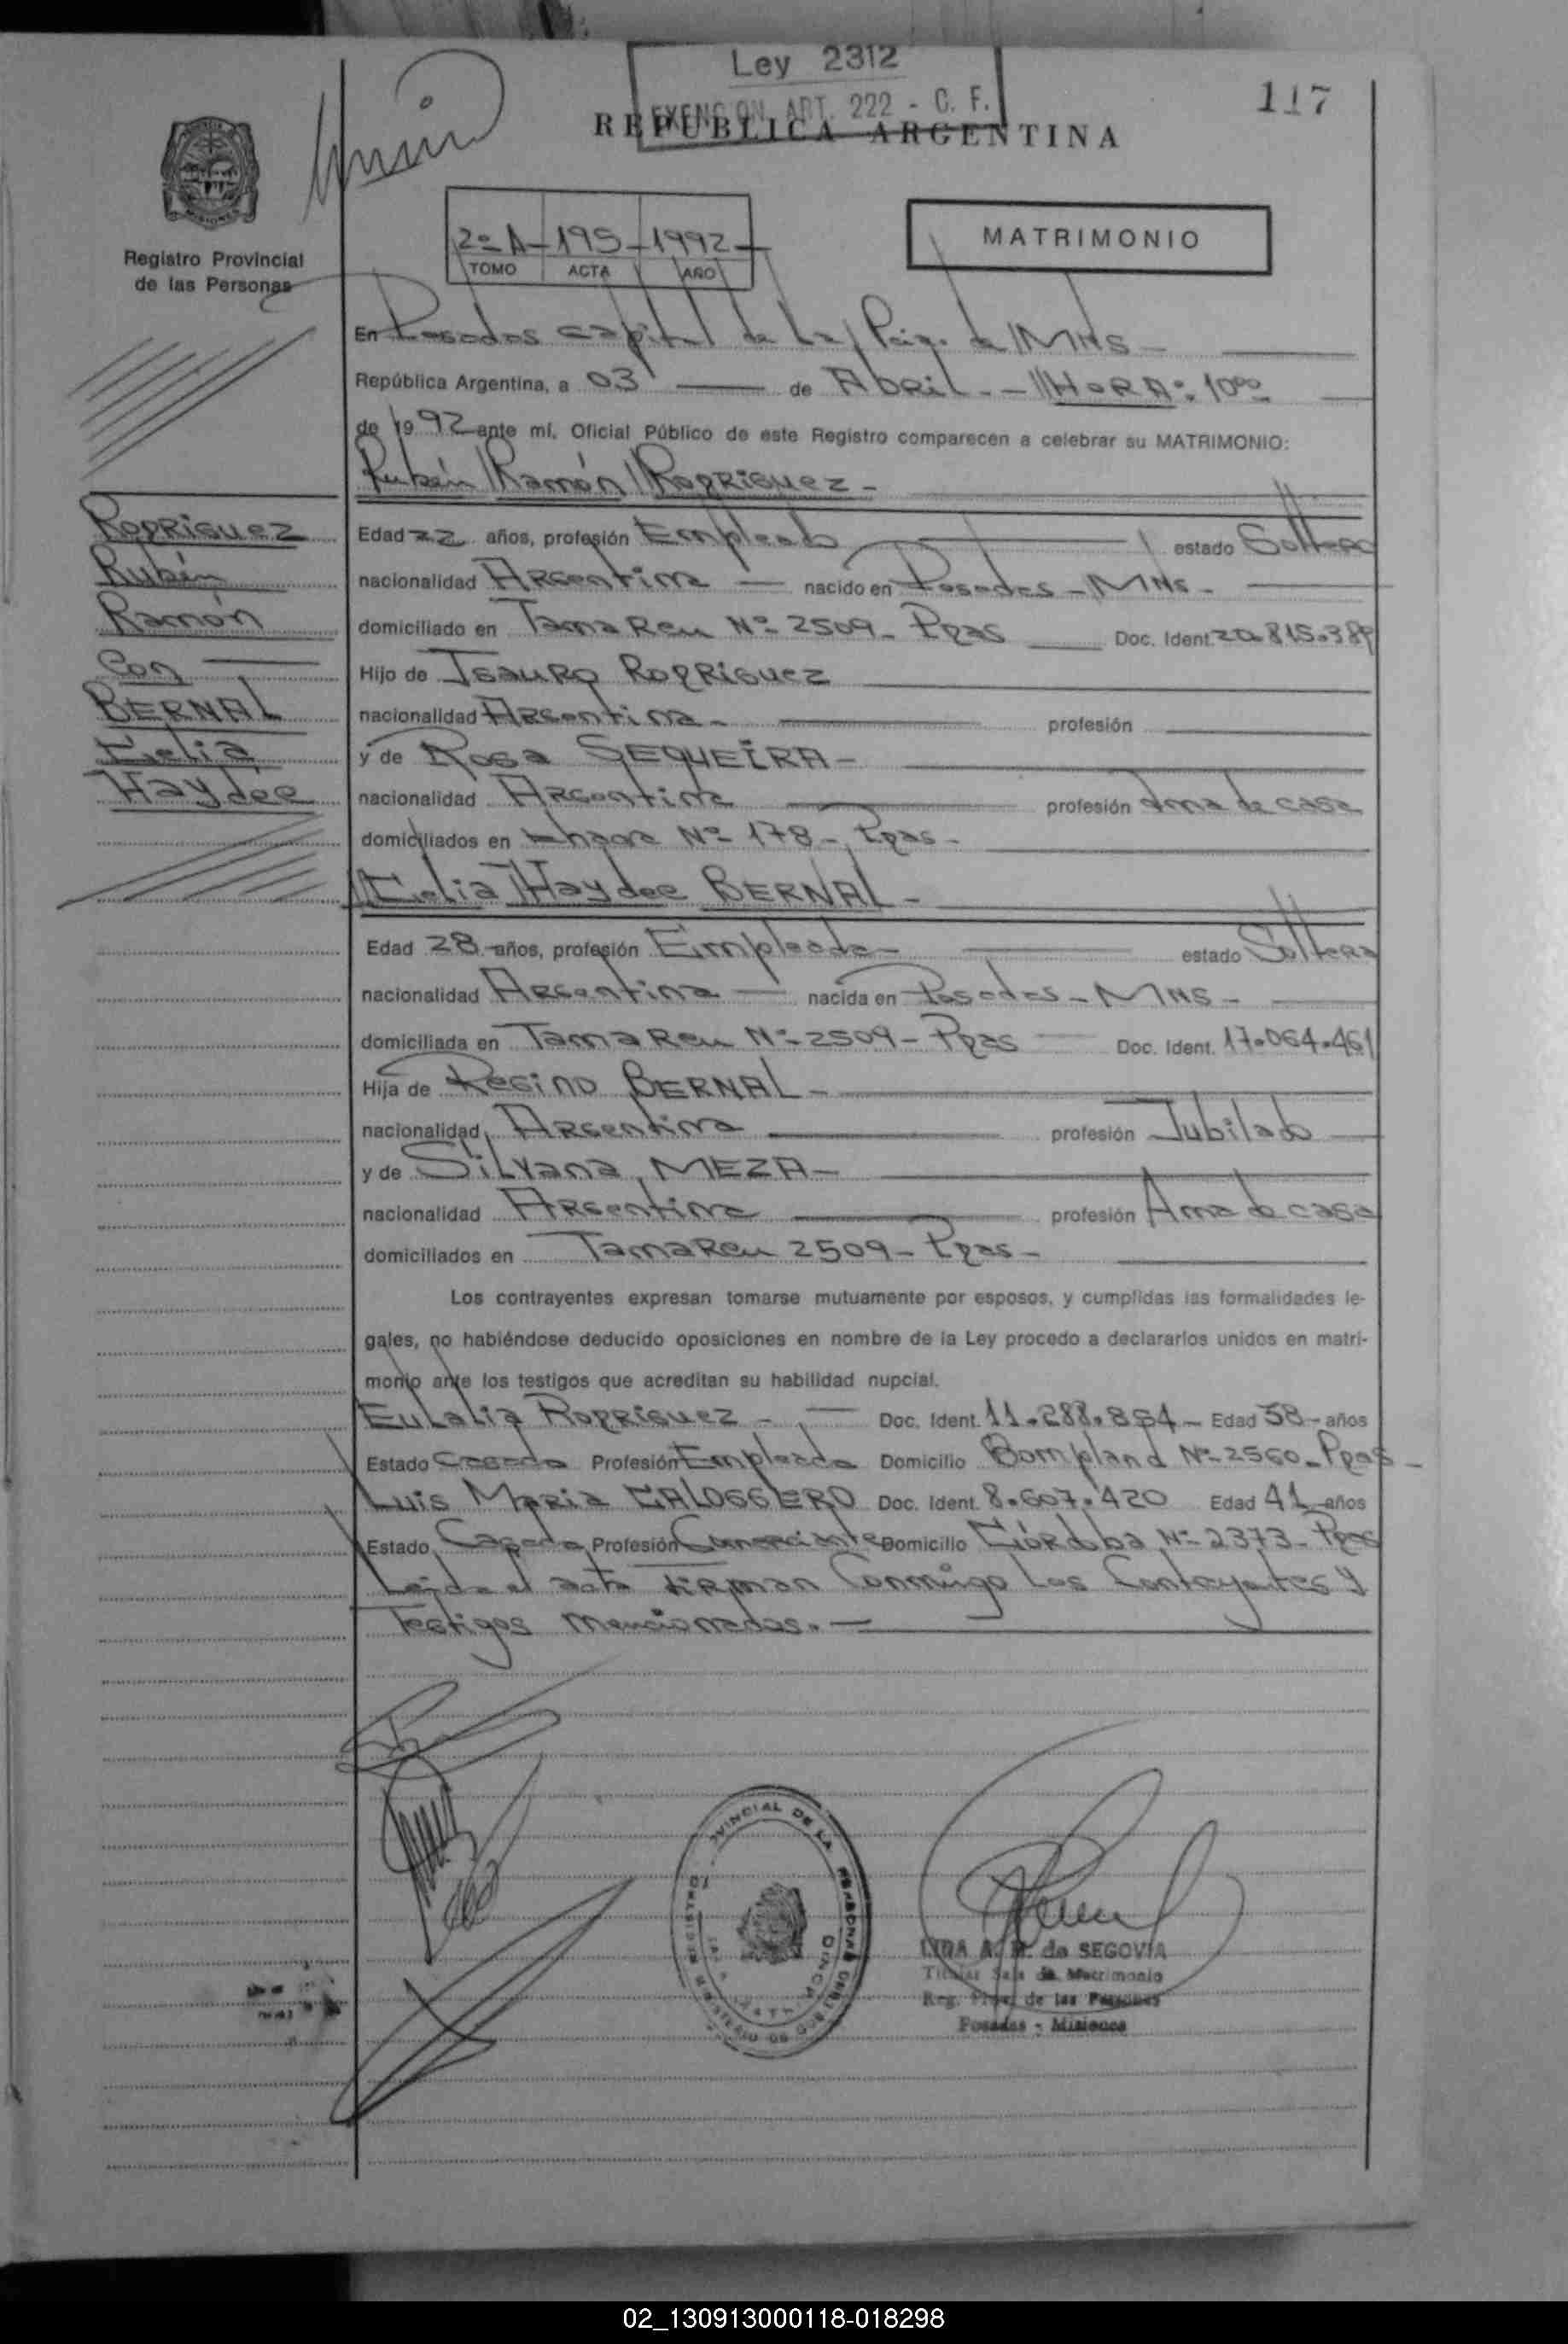 Ley 2312
EXENCION ART. 222 - C. F.
117
REPUBLICA ARGENTINA
Registro Provincial
de las Personas
2º A - 195 - 1992 -
TOMO ACTA AÑO
MATRIMONIO
En Posadas capital de La Pcia. de MNS -
República Argentina, a 03 de Abril. - HORA: 10⁰⁰
de 1992 ante mí, Oficial Público de este Registro comparecen a celebrar su MATRIMONIO:
Rubén Ramón RODRIGUEZ -
RODRIGUEZ
Rubén
Ramón
Con
BERNAL
Celia
Haydée
Edad 22 años, profesión Empleado estado Soltero
nacionalidad Argentina nacido en Posadas - MNS -
domiciliado en Tamareu Nº 2509 - Pdas Doc. Ident. 20.815.389
Hijo de Isauro RODRIGUEZ
nacionalidad Argentina - profesión
y de Rosa SEQUEIRA -
nacionalidad Argentina profesión Ama de casa
domiciliados en Chacra Nº 178 - Pdas -
Celia Haydee BERNAL -
Edad 28 - años, profesión Empleada - estado Soltera
nacionalidad Argentina nacida en Posadas - MNS -
domiciliada en Tamareu Nº 2509 - Pdas Doc. Ident. 17.064.461
Hija de Regino BERNAL -
nacionalidad Argentina profesión Jubilado
y de Silvana MEZA -
nacionalidad Argentina profesión Ama de casa
domiciliados en Tamareu 2509 - Pdas -
Los contrayentes expresan tomarse mutuamente por esposos, y cumplidas las formalidades le-
gales, no habiéndose deducido oposiciones en nombre de la Ley procedo a declararlos unidos en matri-
monio ante los testigos que acreditan su habilidad nupcial.
Eulalia RODRIGUEZ - Doc. Ident. 11.288.854 - Edad 38 - años
Estado Casada Profesión Empleada Domicilio Bompland Nº 2560 - Pdas -
Luis Maria CALOGGERO Doc. Ident. 8.607.420 Edad 41 años
Estado Casado Profesión Comerciante Domicilio Córdoba Nº 2373 - Pdas
Leída el acta firman Conmigo Los Contrayentes y
Testigos Mencionados. -
LIDA A. de SEGOVIA
Titular Sala de Matrimonio
Reg. Prov. de las Personas
Posadas - Misiones
02_130913000118-018298